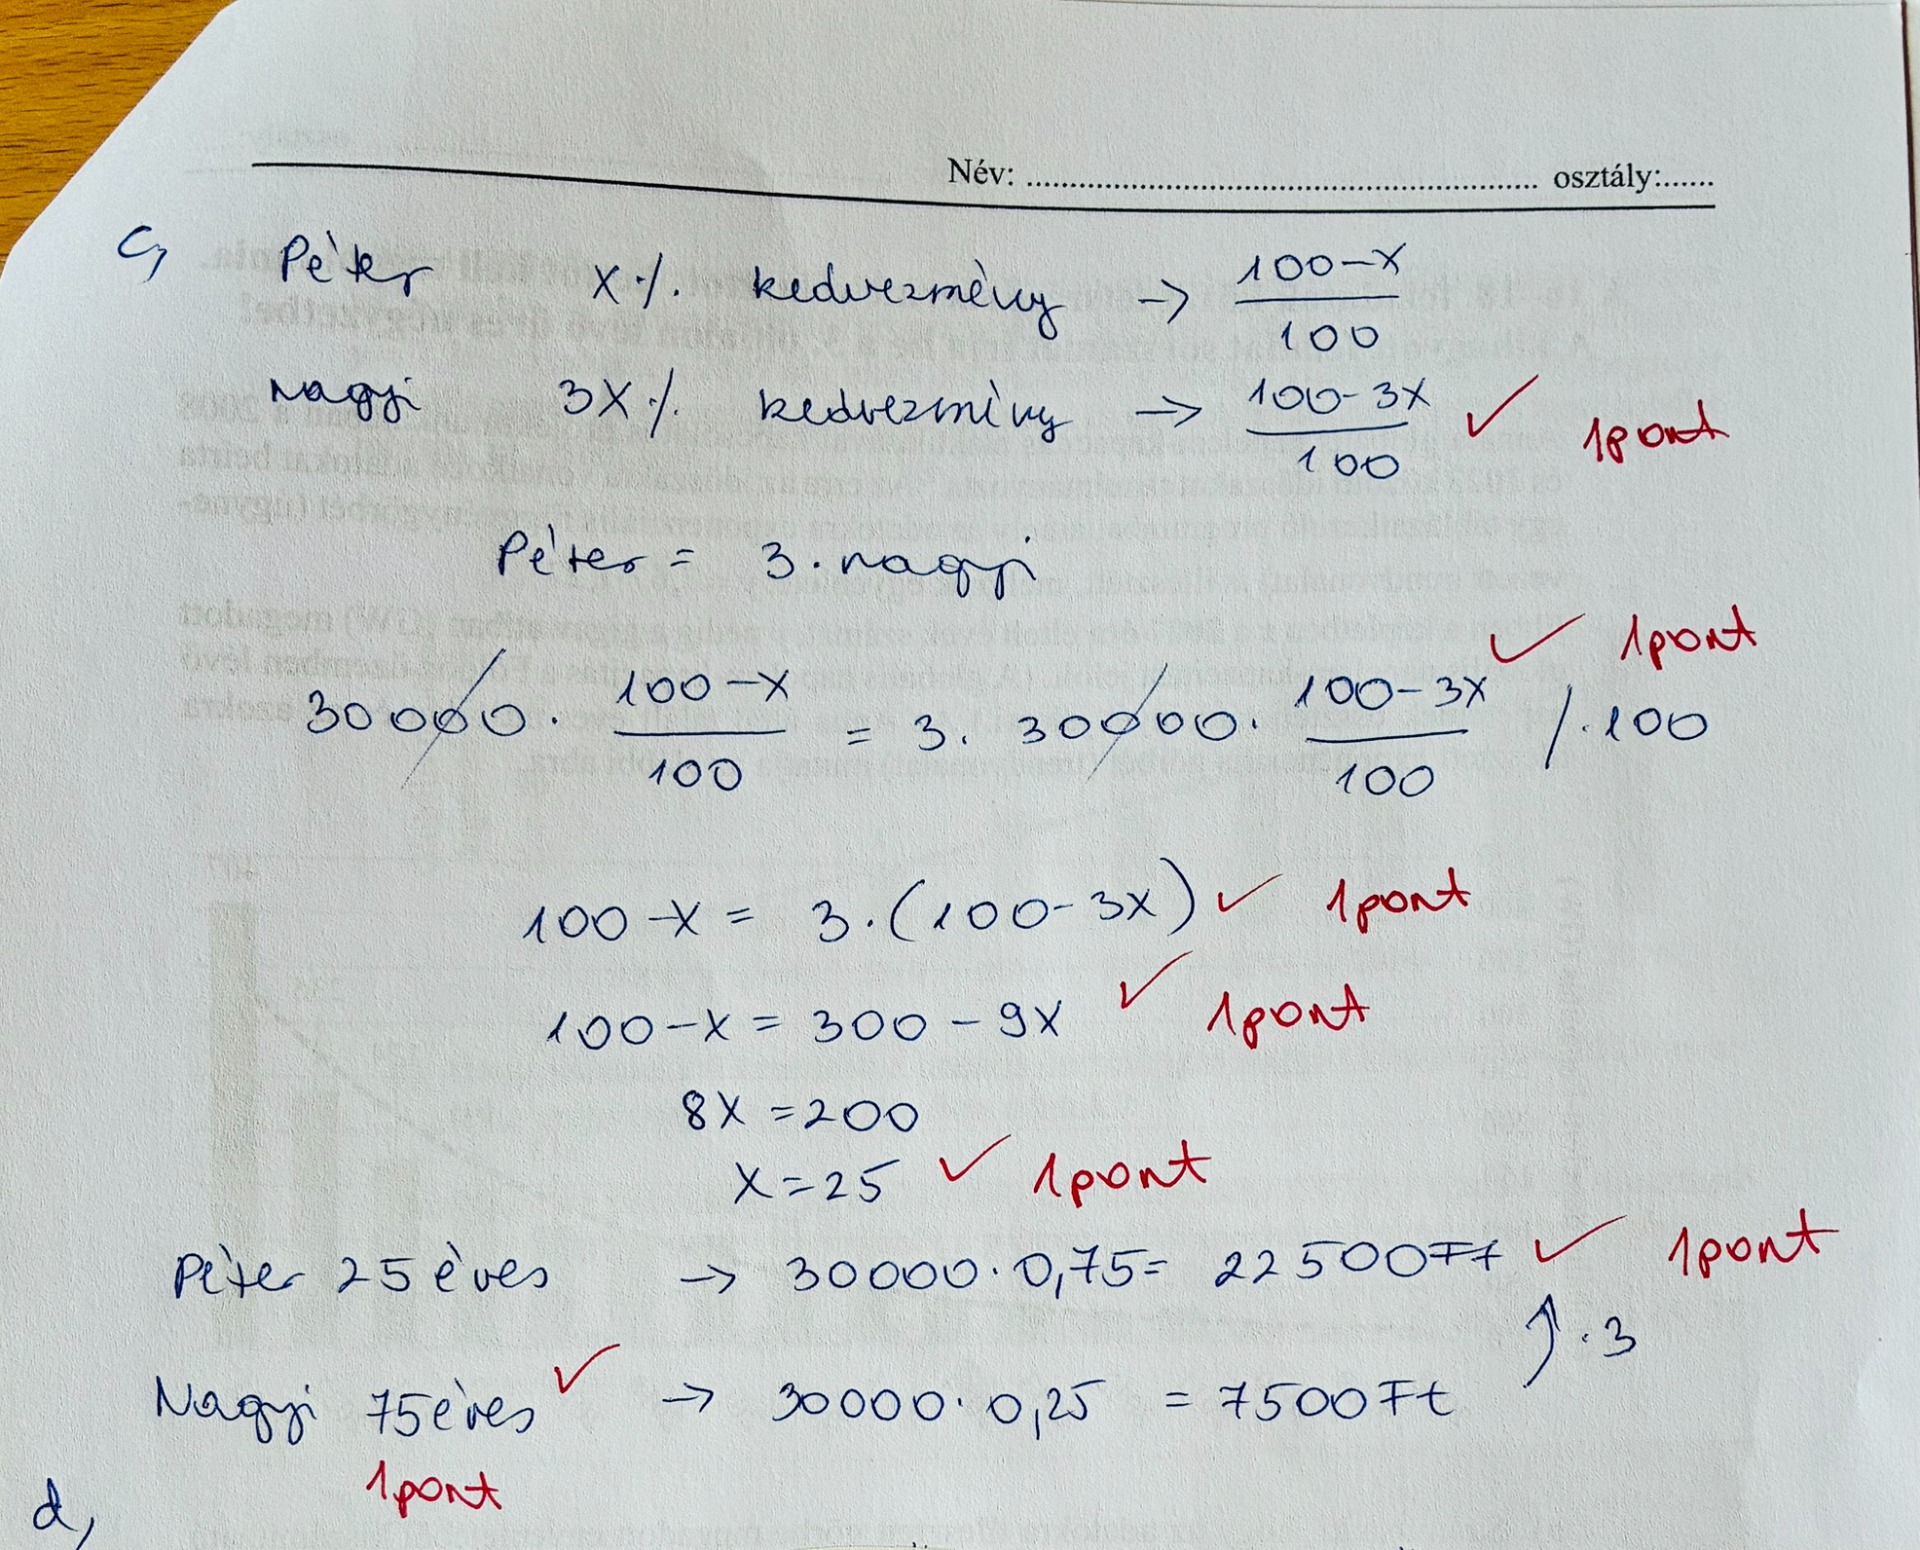 Név: ........................................ osztály:......
c, Péter x% kedvezmény → (100-x)/100
nagyi 3x% kedvezmény → (100-3x)/100 ✓ 1pont
Péter = 3·nagyi
30000 · (100-x)/100 = 3 · 30000 · (100-3x)/100 /·100 ✓ 1pont
100-x = 3·(100-3x) ✓ 1pont
100-x = 300-9x ✓ 1pont
8x = 200
x = 25 ✓ 1pont
Péter 25 éves → 30000·0,75= 22500Ft ✓ 1pont
↑·3
Nagyi 75 éves ✓ → 30000·0,25 = 7500Ft
1pont
d,